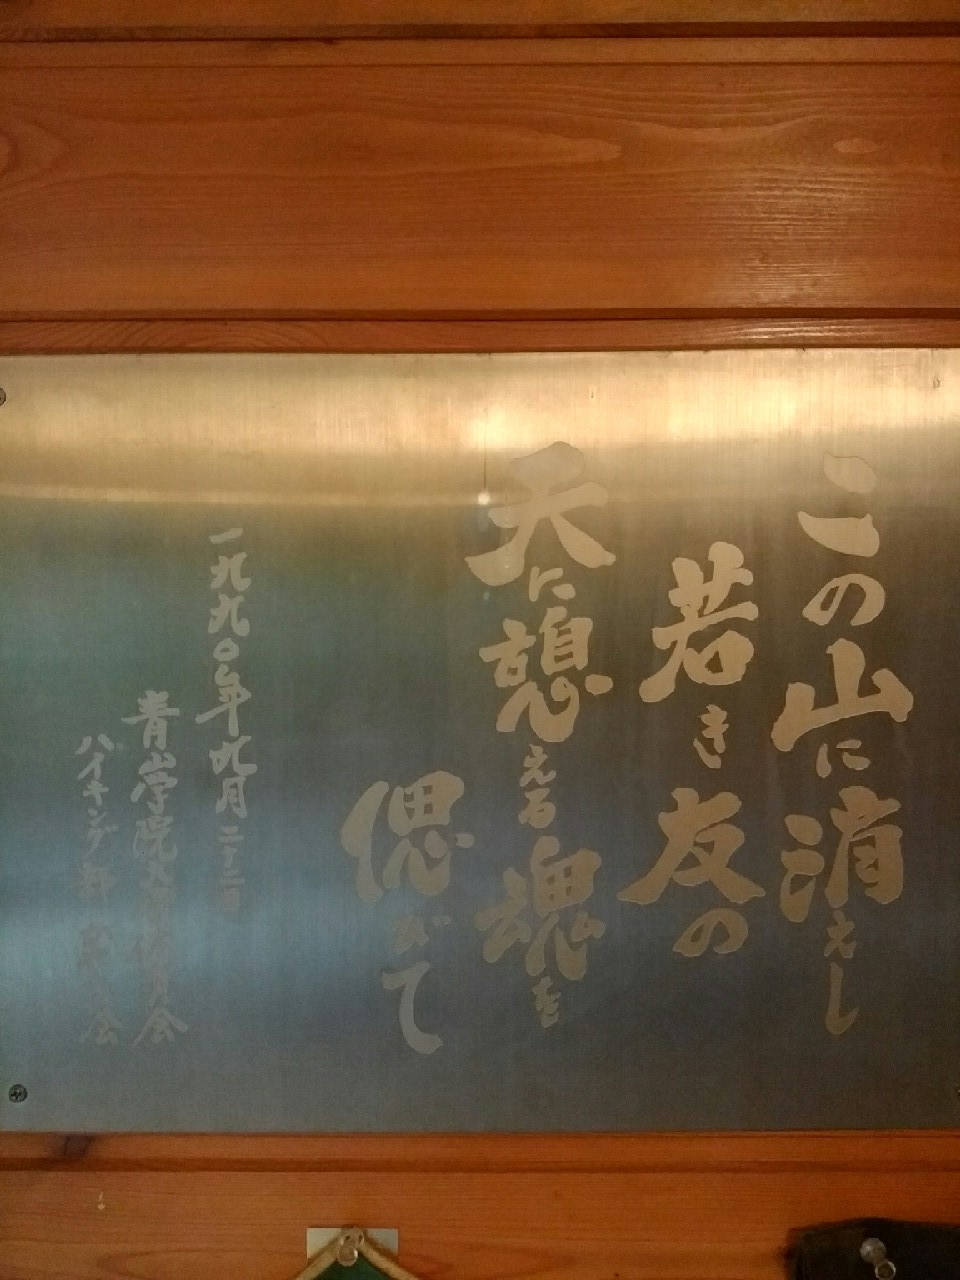 この山に消えし
若き友の
天に憩える魂を
偲びて
一九九〇年九月
青山学院大学
ハイキング部